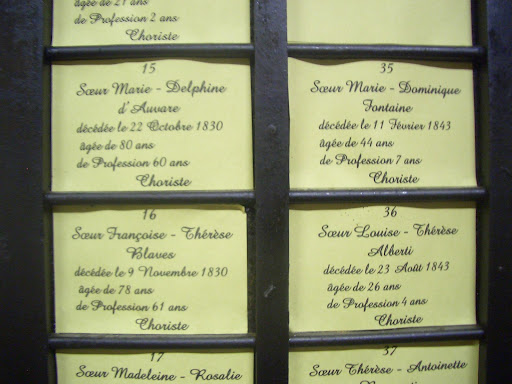 âgée de 21 ans
de Profession 2 ans
Choriste
15
Sœur Marie - Delphine
d'Auvare
décédée le 22 Octobre 1830
âgée de 80 ans
de Profession 60 ans
Choriste
16
Sœur Françoise - Thérèse
Blaves
décédée le 9 Novembre 1830
âgée de 78 ans
de Profession 61 ans
Choriste
17
Sœur Madeleine - Rosalie
35
Sœur Marie - Dominique
Fontaine
décédée le 11 Février 1843
âgée de 44 ans
de Profession 7 ans
Choriste
36
Sœur Louise - Thérèse
Alberti
décédée le 23 Août 1843
âgée de 26 ans
de Profession 4 ans
Choriste
37
Sœur Thérèse - Antoinette